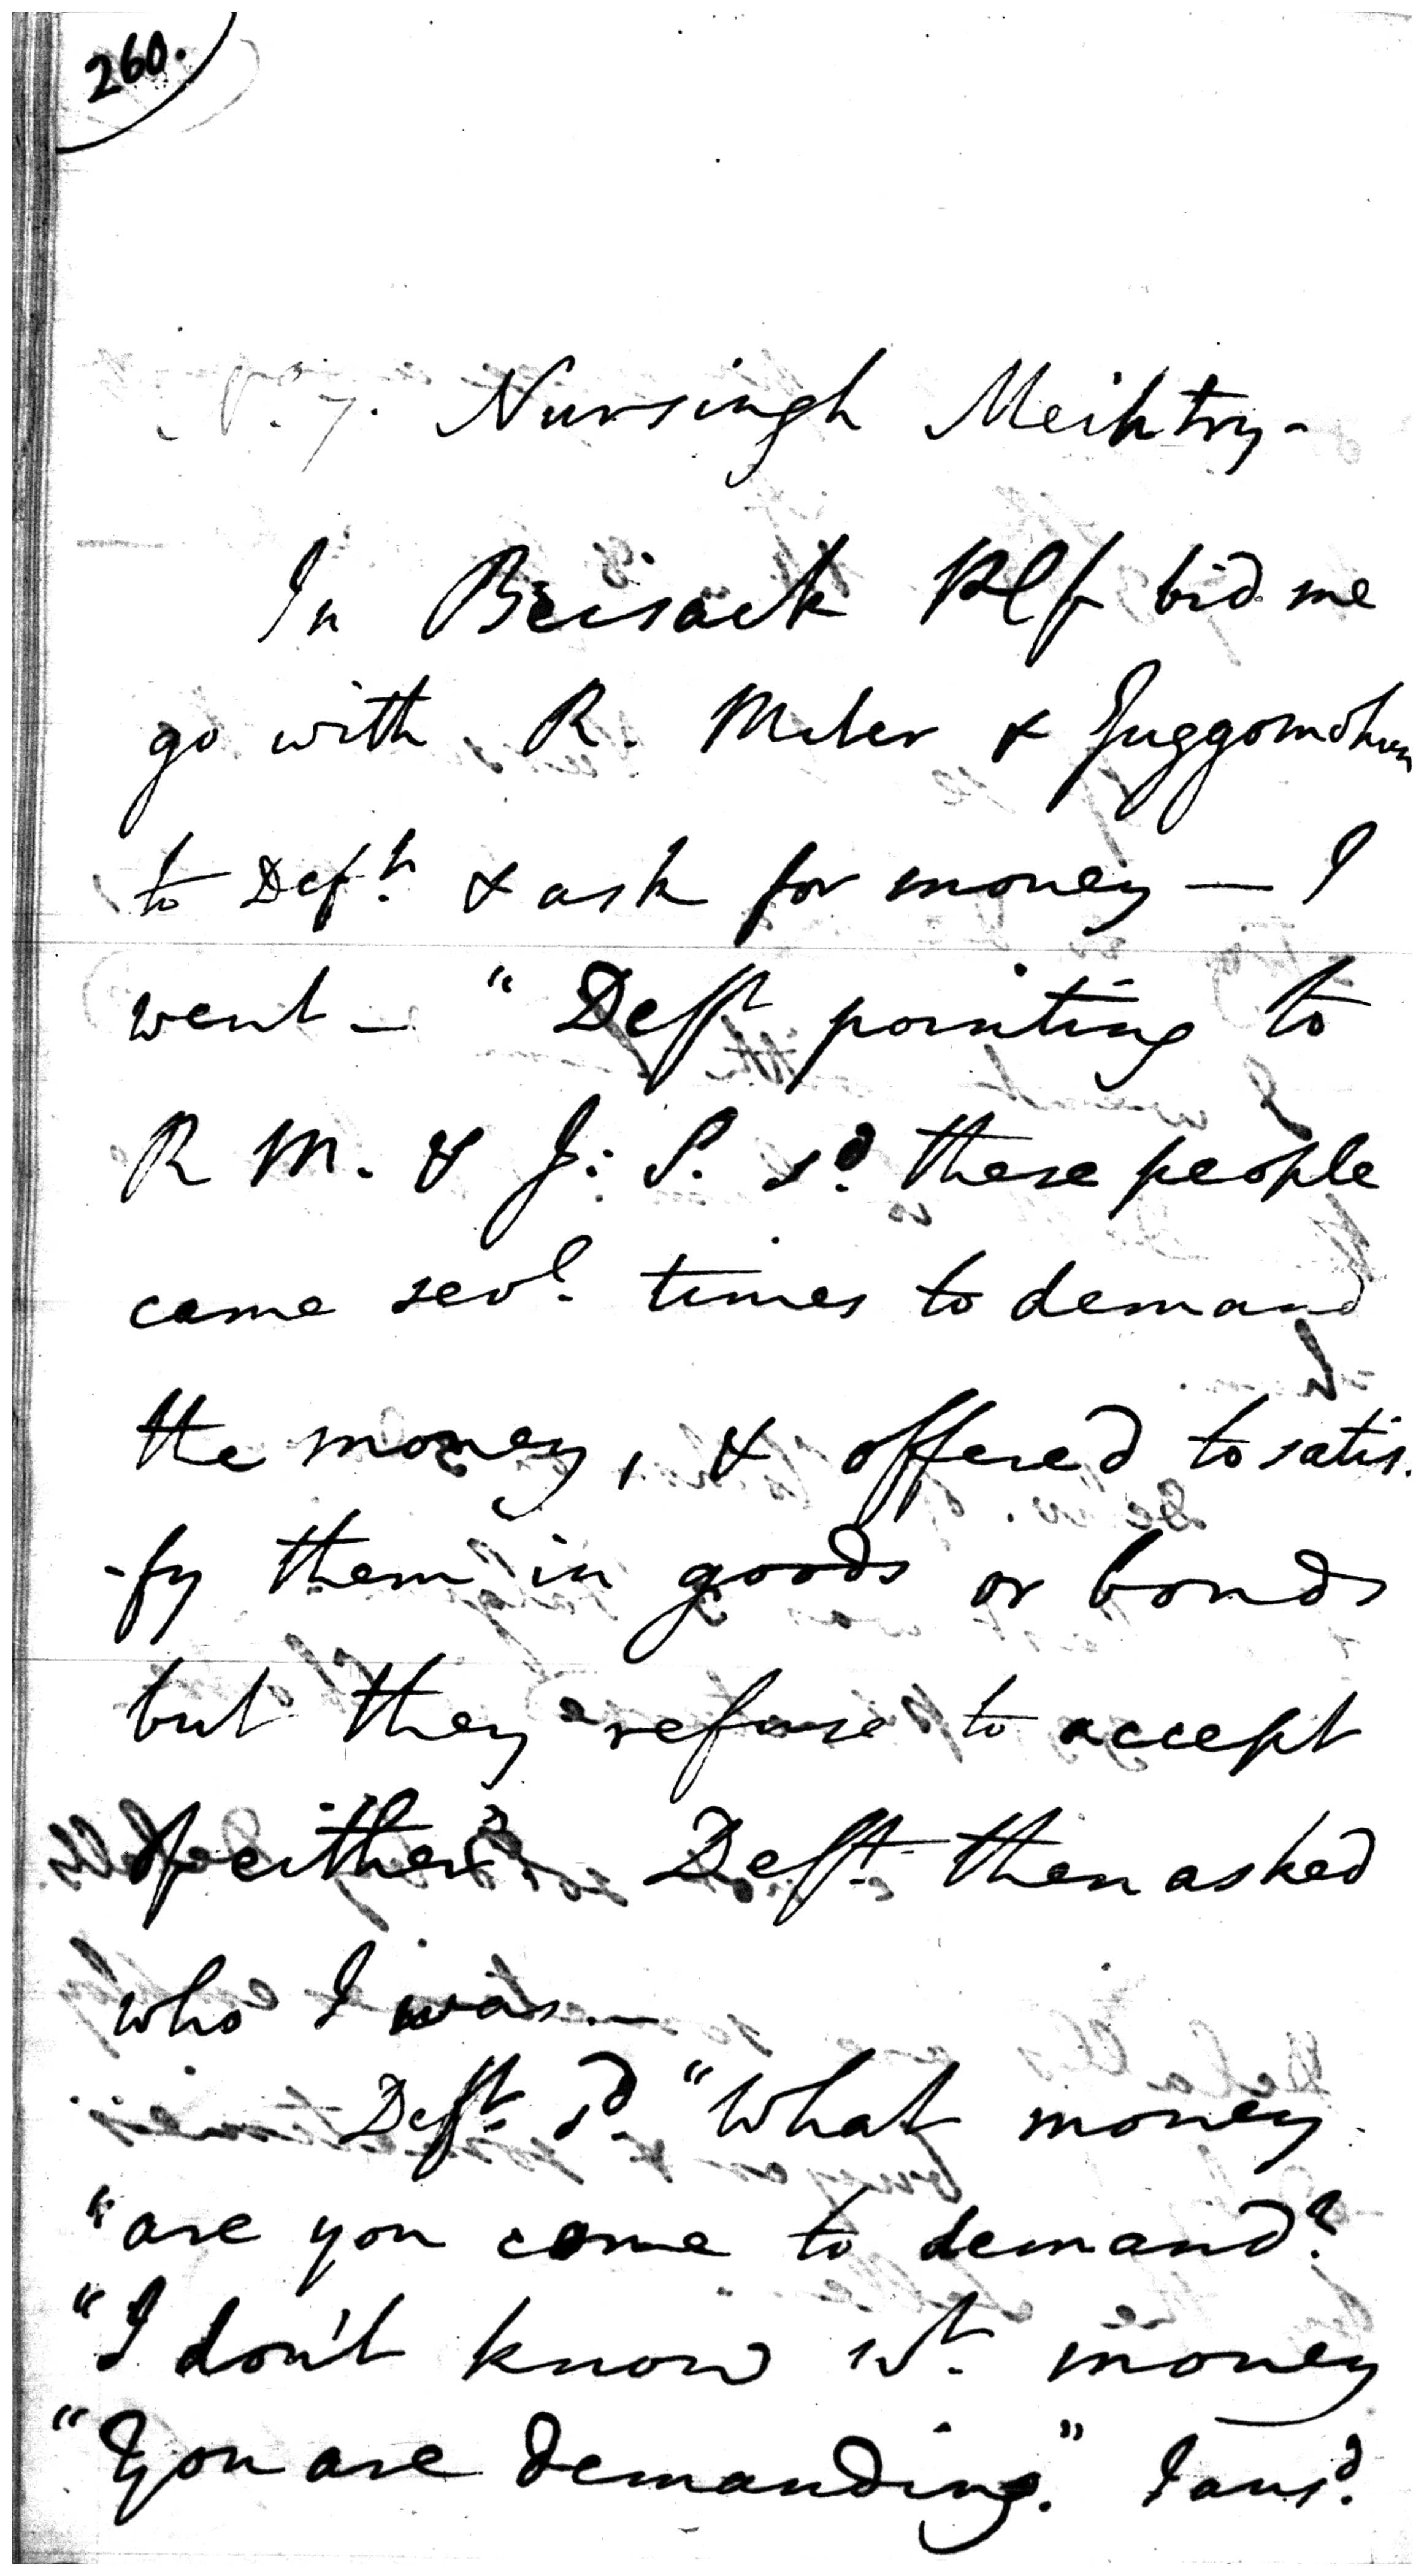 260.
Nursingh Meihtry -
In Beisack Plf bid me
go with R. Miter & Juggomohun
to Deft. & ask for money — I
went — " Deft pointing to
R M. & J: S. sd. these people
came sevl. times to demand
the money, & offered to satis.
-fy them in goods or bonds
but they refuse to accept
of either" Deft. then asked
who I was. —
Deft. sd. "What money
"are you come to demand?
"I don't know wt. money
"you are demanding." I ansd.